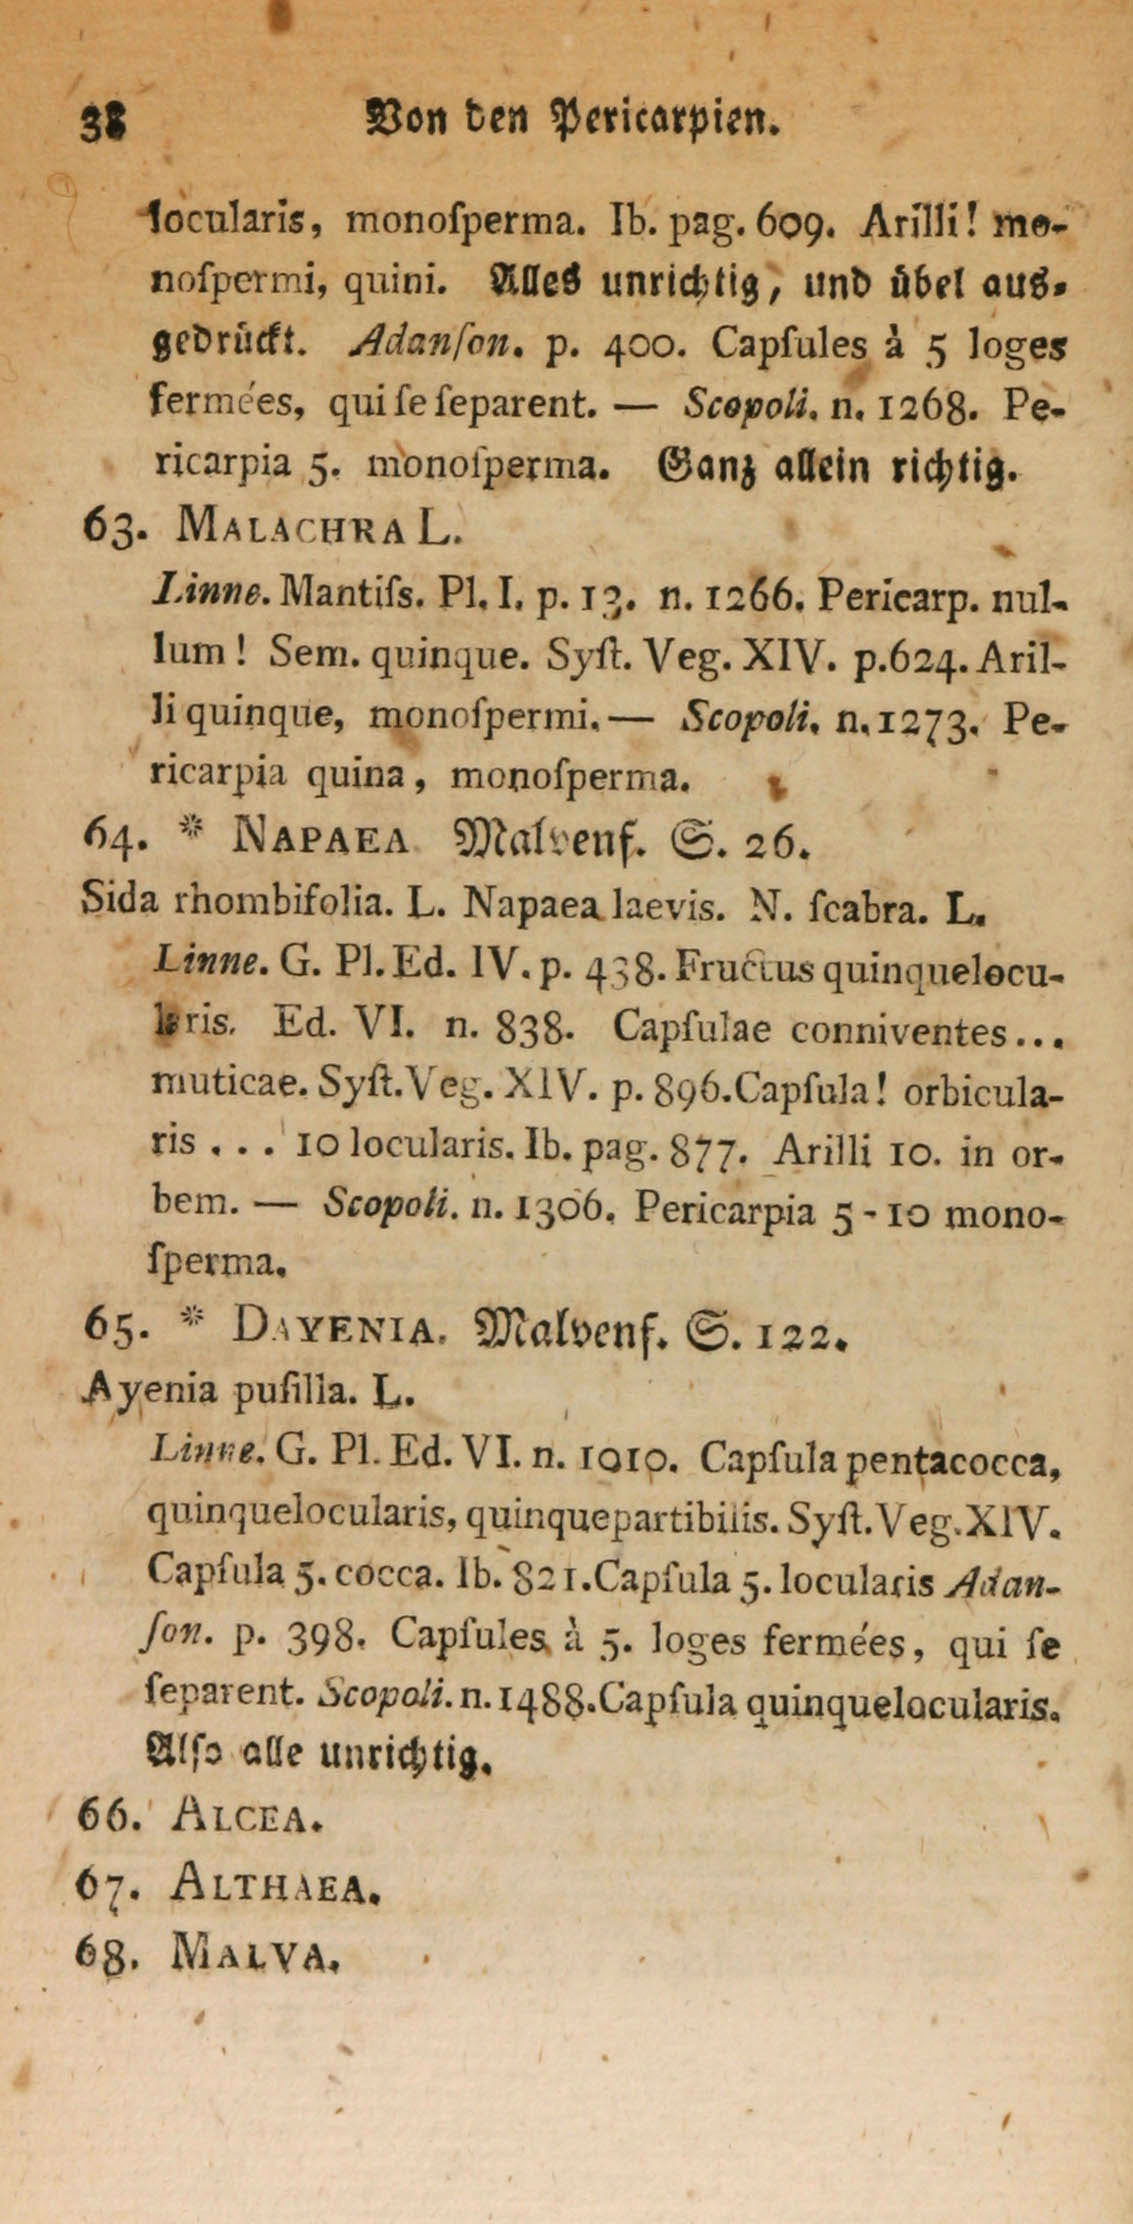 38 Von den Pericarpien.
locularis, monoſperma. Ib. pag. 609. Arilli! mo-
noſpermi, quini. Alles unrichtig, und übel aus-
gedrückt. Adanſon. p. 400. Capſules à 5 loges
fermées, qui ſe ſeparent. — Scopoli. n. 1268. Pe-
ricarpia 5. monoſperma. Ganz allein richtig.
63. MALACHRA L.
Linne. Mantiſs. Pl. I. p. 13. n. 1266. Pericarp. nul-
lum! Sem. quinque. Syſt. Veg. XIV. p. 624. Aril-
li quinque, monoſpermi. — Scopoli. n. 1273. Pe-
ricarpia quina, monoſperma.
64. * NAPAEA Malvenf. S. 26.
Sida rhombifolia. L. Napaea laevis. N. ſcabra. L.
Linne. G. Pl. Ed. IV. p. 438. Fructus quinquelocu-
laris. Ed. VI. n. 838. Capſulae conniventes...
muticae. Syſt. Veg. XIV. p. 896. Capſula! orbicula-
ris . . . 10 locularis. Ib. pag. 877. Arilli 10. in or-
bem. — Scopoli. n. 1306. Pericarpia 5 - 10 mono-
ſperma.
65. * DAYENIA. Malvenf. S. 122.
Ayenia puſilla. L.
Linne. G. Pl. Ed. VI. n. 1010. Capſula pentacocca,
quinquelocularis, quinquepartibilis. Syſt. Veg. XIV.
Capſula 5. cocca. Ib. 821. Capſula 5. locularis Adan-
ſon. p. 398. Capſules à 5. loges fermées, qui ſe
ſeparent. Scopoli. n. 1488. Capſula quinquelocularis.
Alſo alle unrichtig.
66. ALCEA.
67. ALTHAEA.
68. MALVA.